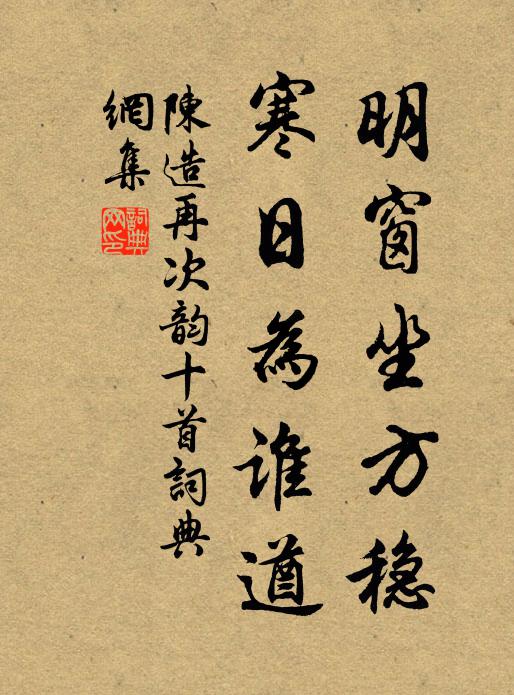 明窗坐方穩
寒日為誰遒
陳造再次韵十首詞典
網集
詞典網印